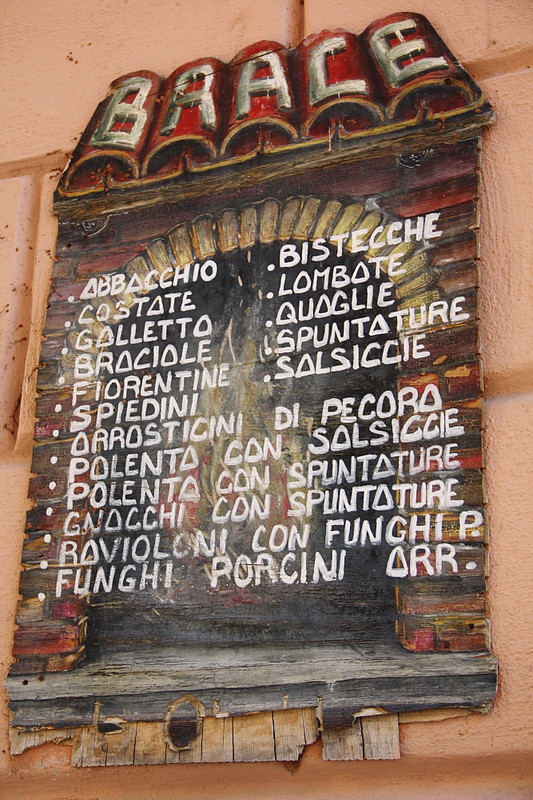 BRACE
. ABBACCHIO
. COSTATE
. GALLETTO
. BRACIOLE
. FIORENTINE
. SPIEDINI
. ARROSTICINI DI PECORA
. POLENTA CON SALSICCIE
. POLENTA CON SPUNTATURE
. GNOCCHI CON SPUNTATURE
. RAVIOLONI CON FUNGHI P.
. FUNGHI PORCINI ARR.
. BISTECCHE
. LOMBATE
. QUAGLIE
. SPUNTATURE
. SALSICCIE